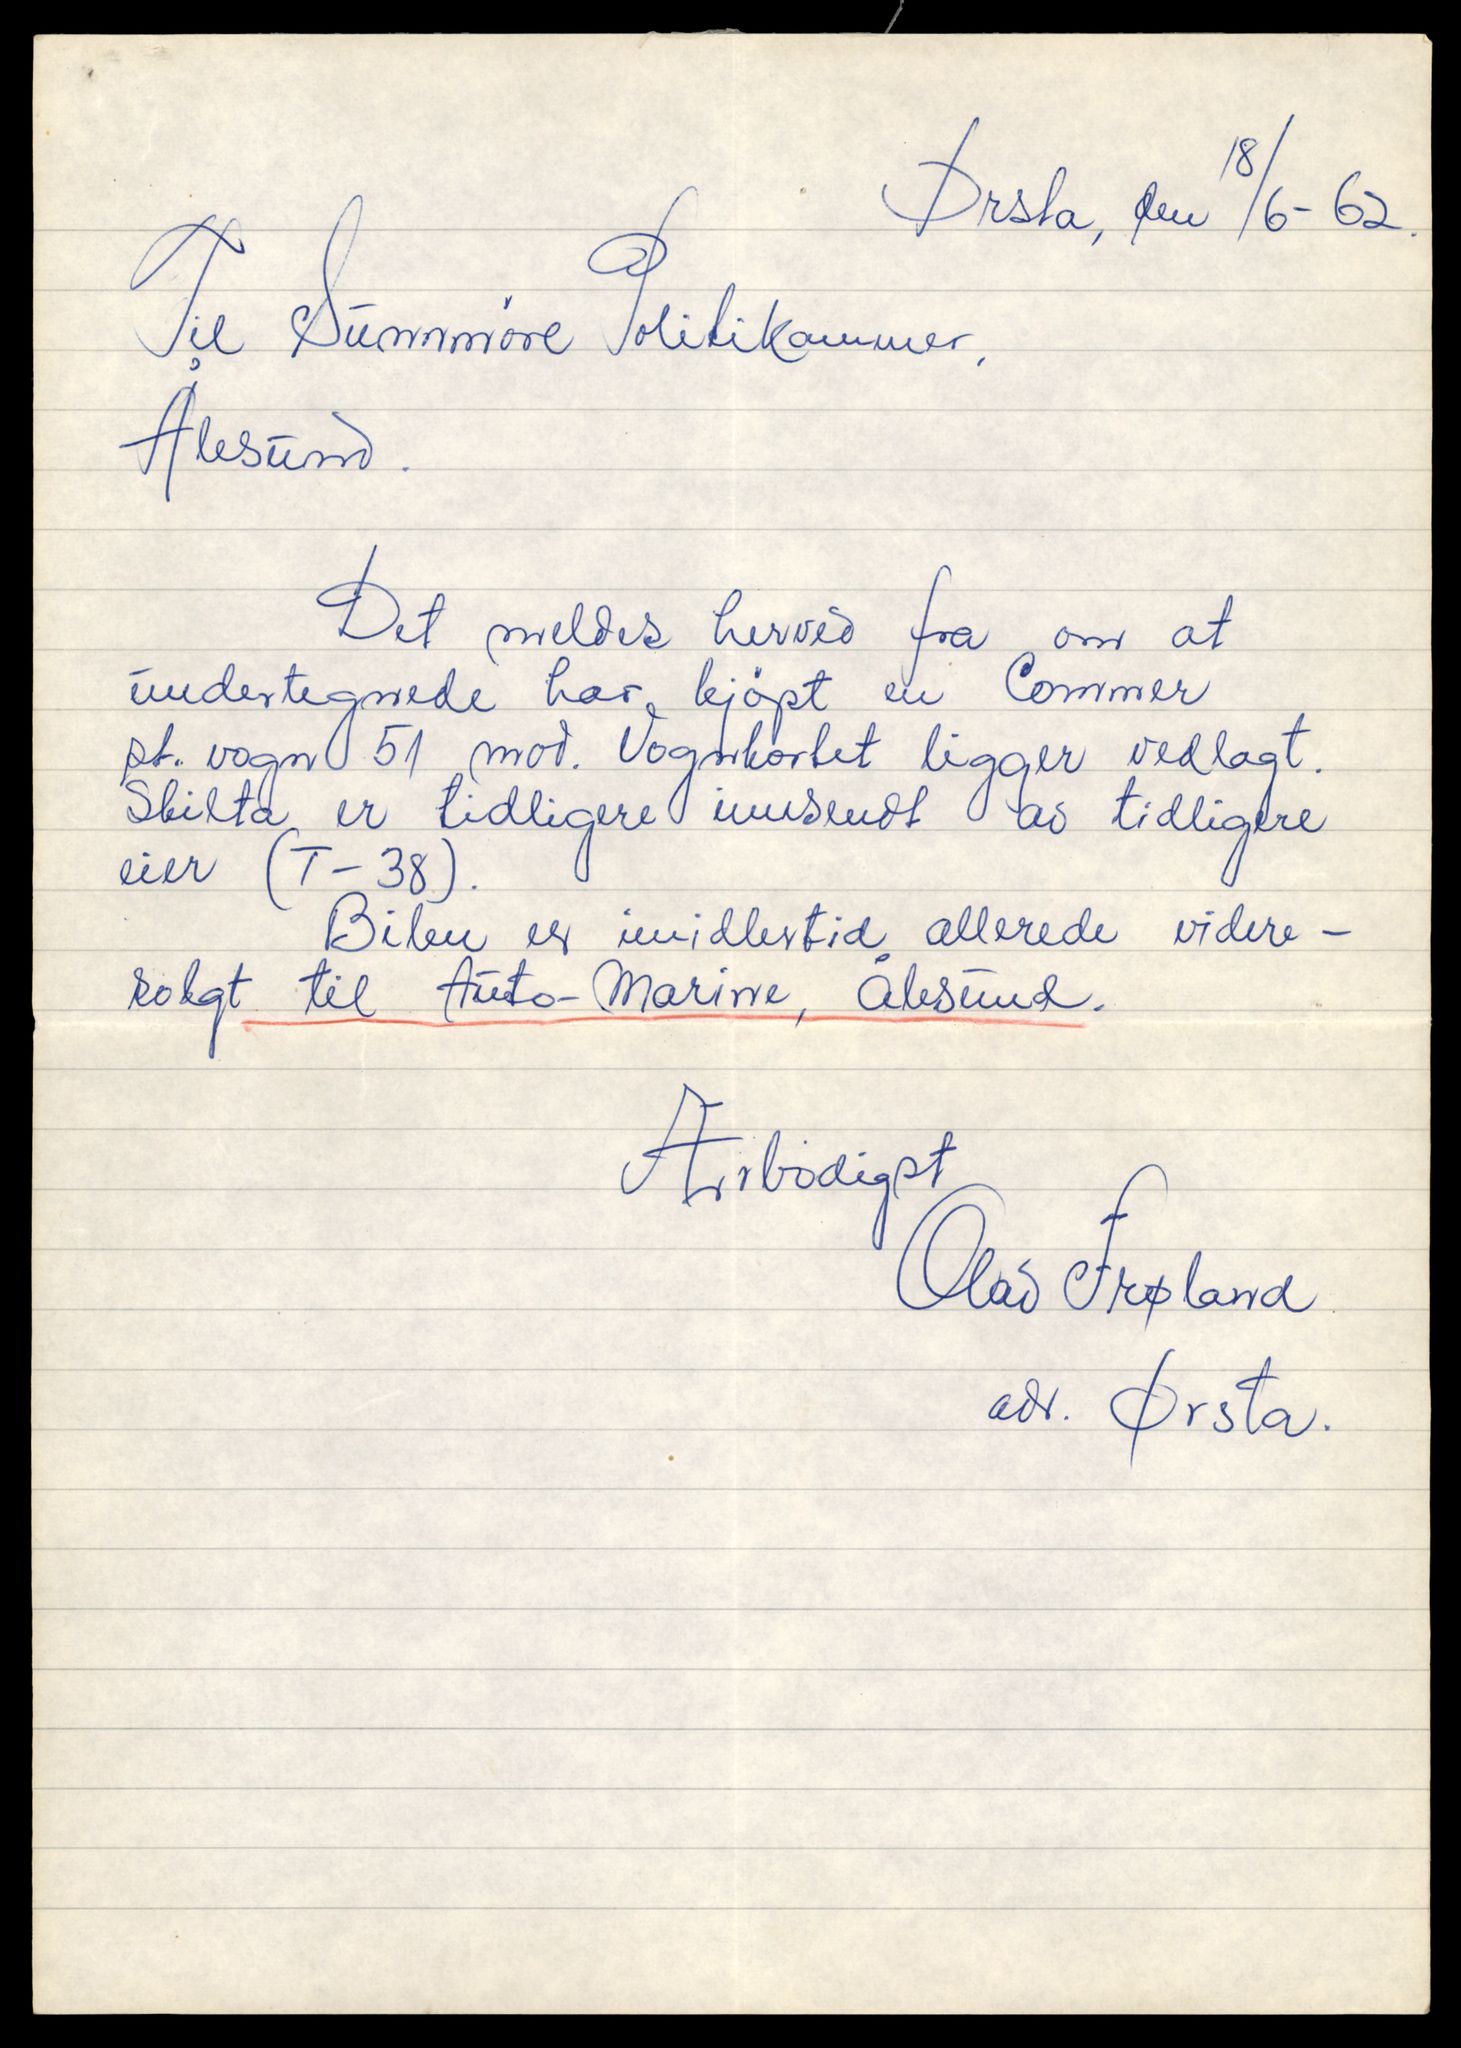 Ørsta, den 18/6-62.
Til Sunnmöre Politikammer,
Ålesund.
Det meldes herved fra om at
undertegnede har kjöpt en Commer
st. vogn 51 mod. Vognkortet ligger vedlagt.
Skilta er tidligere innsendt av tidligere
eier (T-38).
Bilen er imidlertid allerede videre-
solgt til Auto-Marine, Ålesund.
Ærbödigst
Olav Frøland
adr. Ørsta.